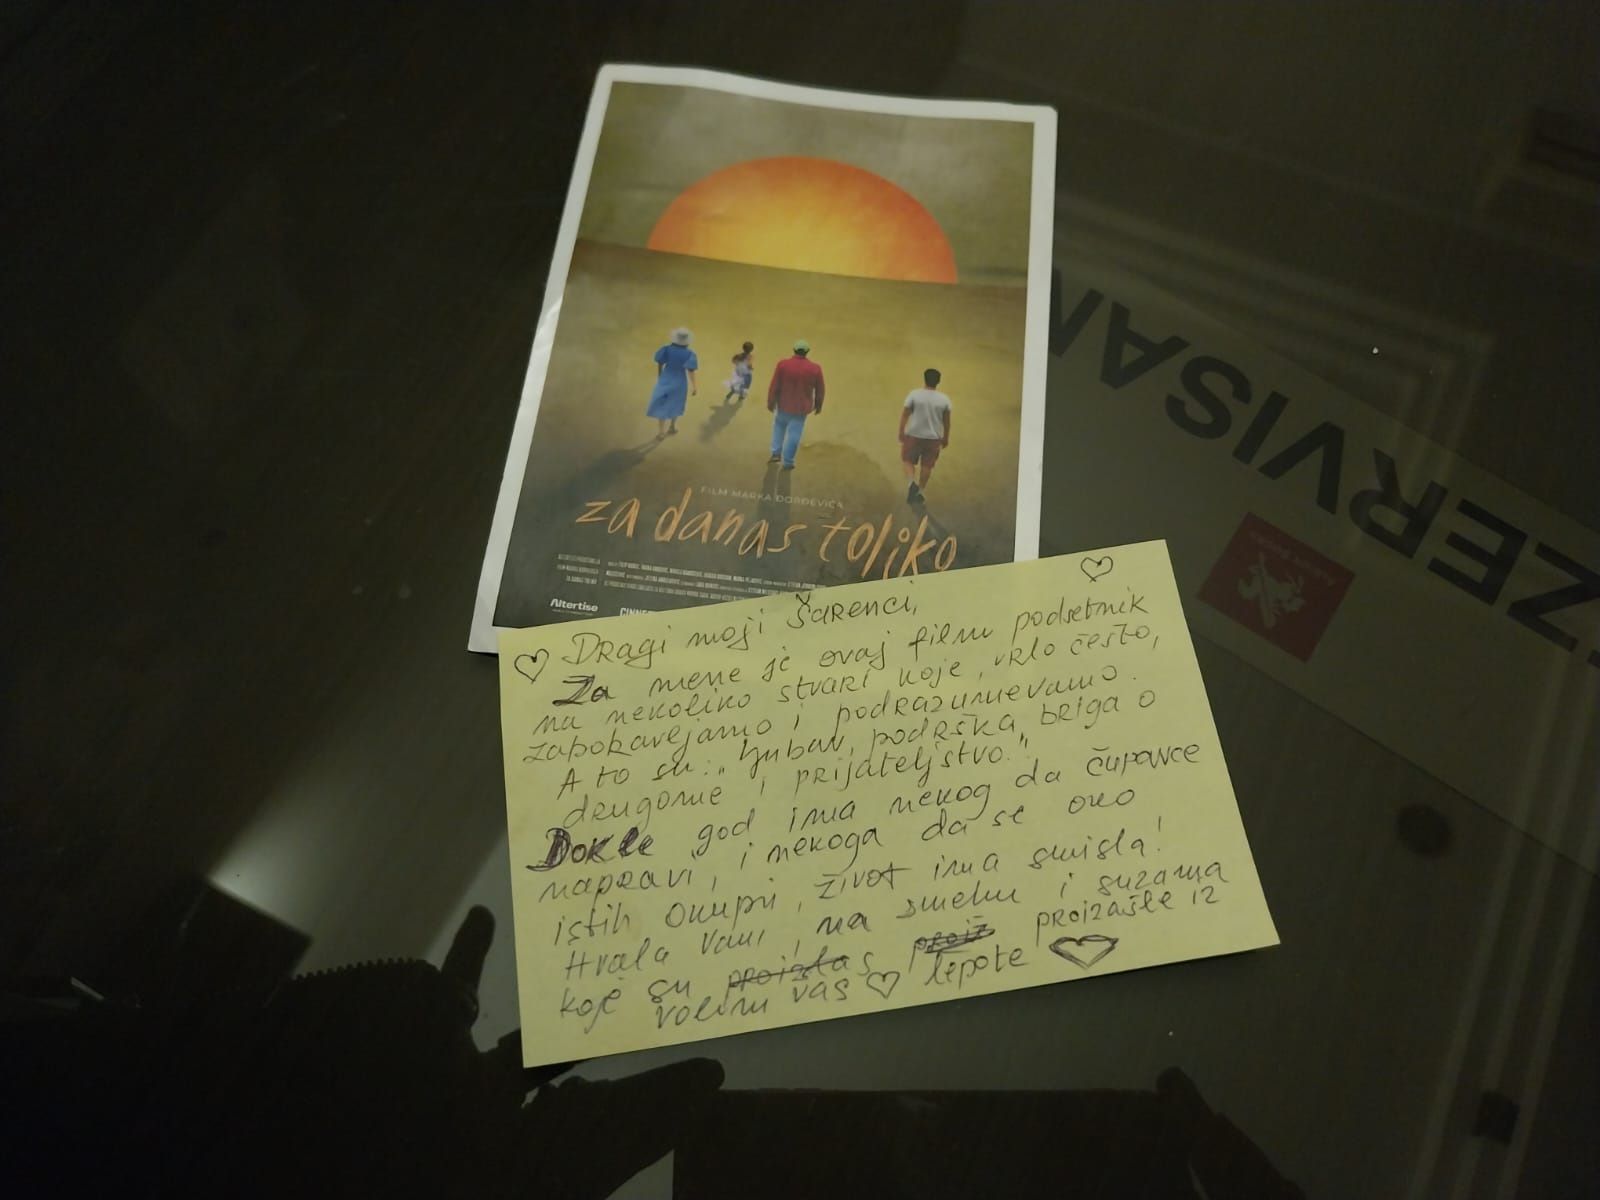 FILM MARKA ĐORĐEVIĆA
za danas toliko
Altertise
CINNE
Dragi moji Šarenci,
Za mene je ovaj film podsetnik
na nekoliko stvari koje, vrlo često,
zaboravljamo i podrazumevamo.
A to su: „ljubav, podrška, briga o
drugome i prijateljstvo."
Dokle god ima nekog da čupavce
napravi, i nekoga da se oko
istih okupi, život ima smisla!
Hvala vam, na smehu i suzama
koje su proizašle iz
lepote
volim vas
ZERVISAN